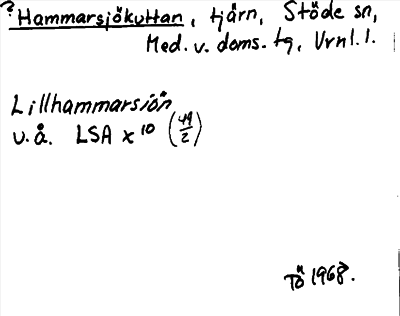 ? Hammarsjökuttan, tjärn, Stöde sn,
Med. v. doms. tg, Vrnl. l.
Lillhammarsjön
v. å. LSA x 10 (49/2)
Tö 1968.